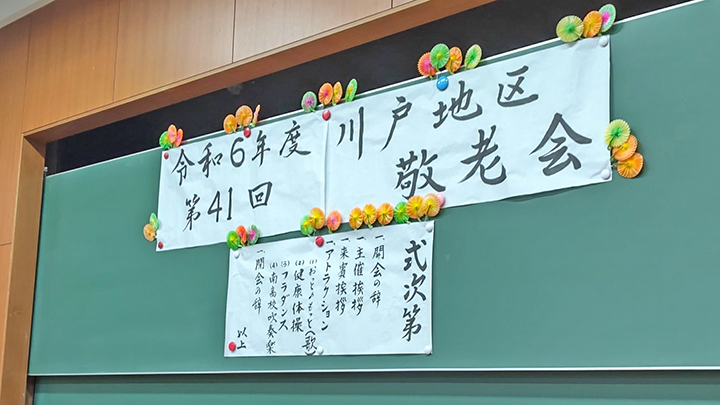 令和6年度
第41回
川戸地区
敬老会
式次第
一、開会の辞
一、主催挨拶
一、来賓挨拶
一、アトラクション
(2)健康体操
(3)フラダンス
(4)南高校吹奏楽
一、閉会の辞
以上